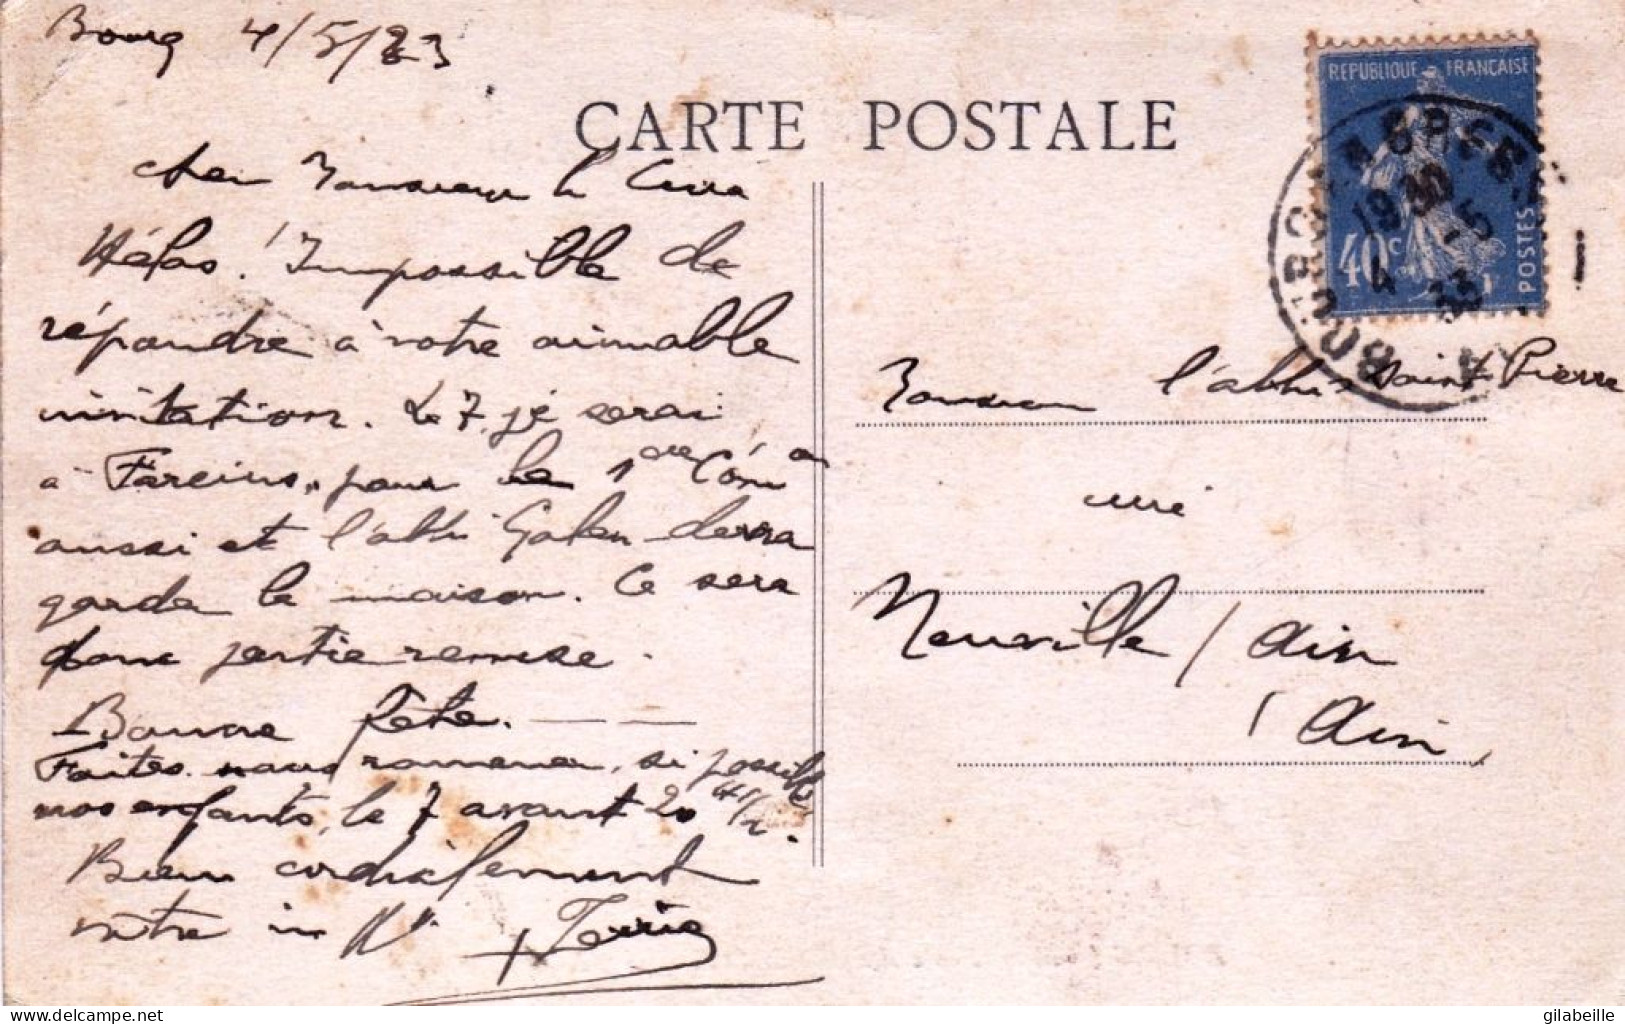 Bourg 4/5/33
CARTE POSTALE
REPUBLIQUE FRANCAISE
40c
POSTES
BOURG EN BRESSE
19 30
4 - 5
33
cher Monsieur le Curé
Hélas ! Impossible de
répondre à votre aimable
invitation. Le 7, je serai
à Fareins, pour la 1ère Comon
aussi et l'abbé devra
garder la maison. Ce sera
donc partie remise.
Bonne fête. — —
Faites-nous ramener, si possible
nos enfants, le 7 avant 20h 1/2.
Bien cordialement
vôtre in
Monsieur l'abbé Saint Pierre
curé
Neuville / Ain
(Ain)
Delcampe.net
gilabeille